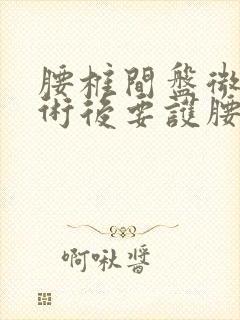 腰椎間盤微
術後要護腰
啊啾醬